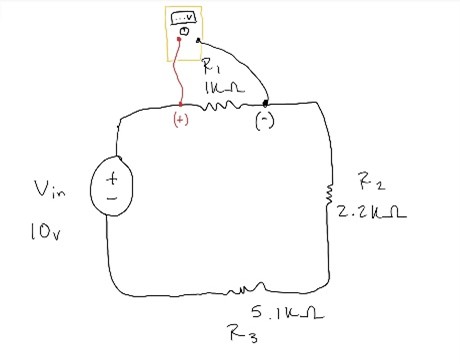 ...v
R1
1kΩ
(+)
(-)
+
-
Vin
10v
R2
2.2kΩ
5.1kΩ
R3